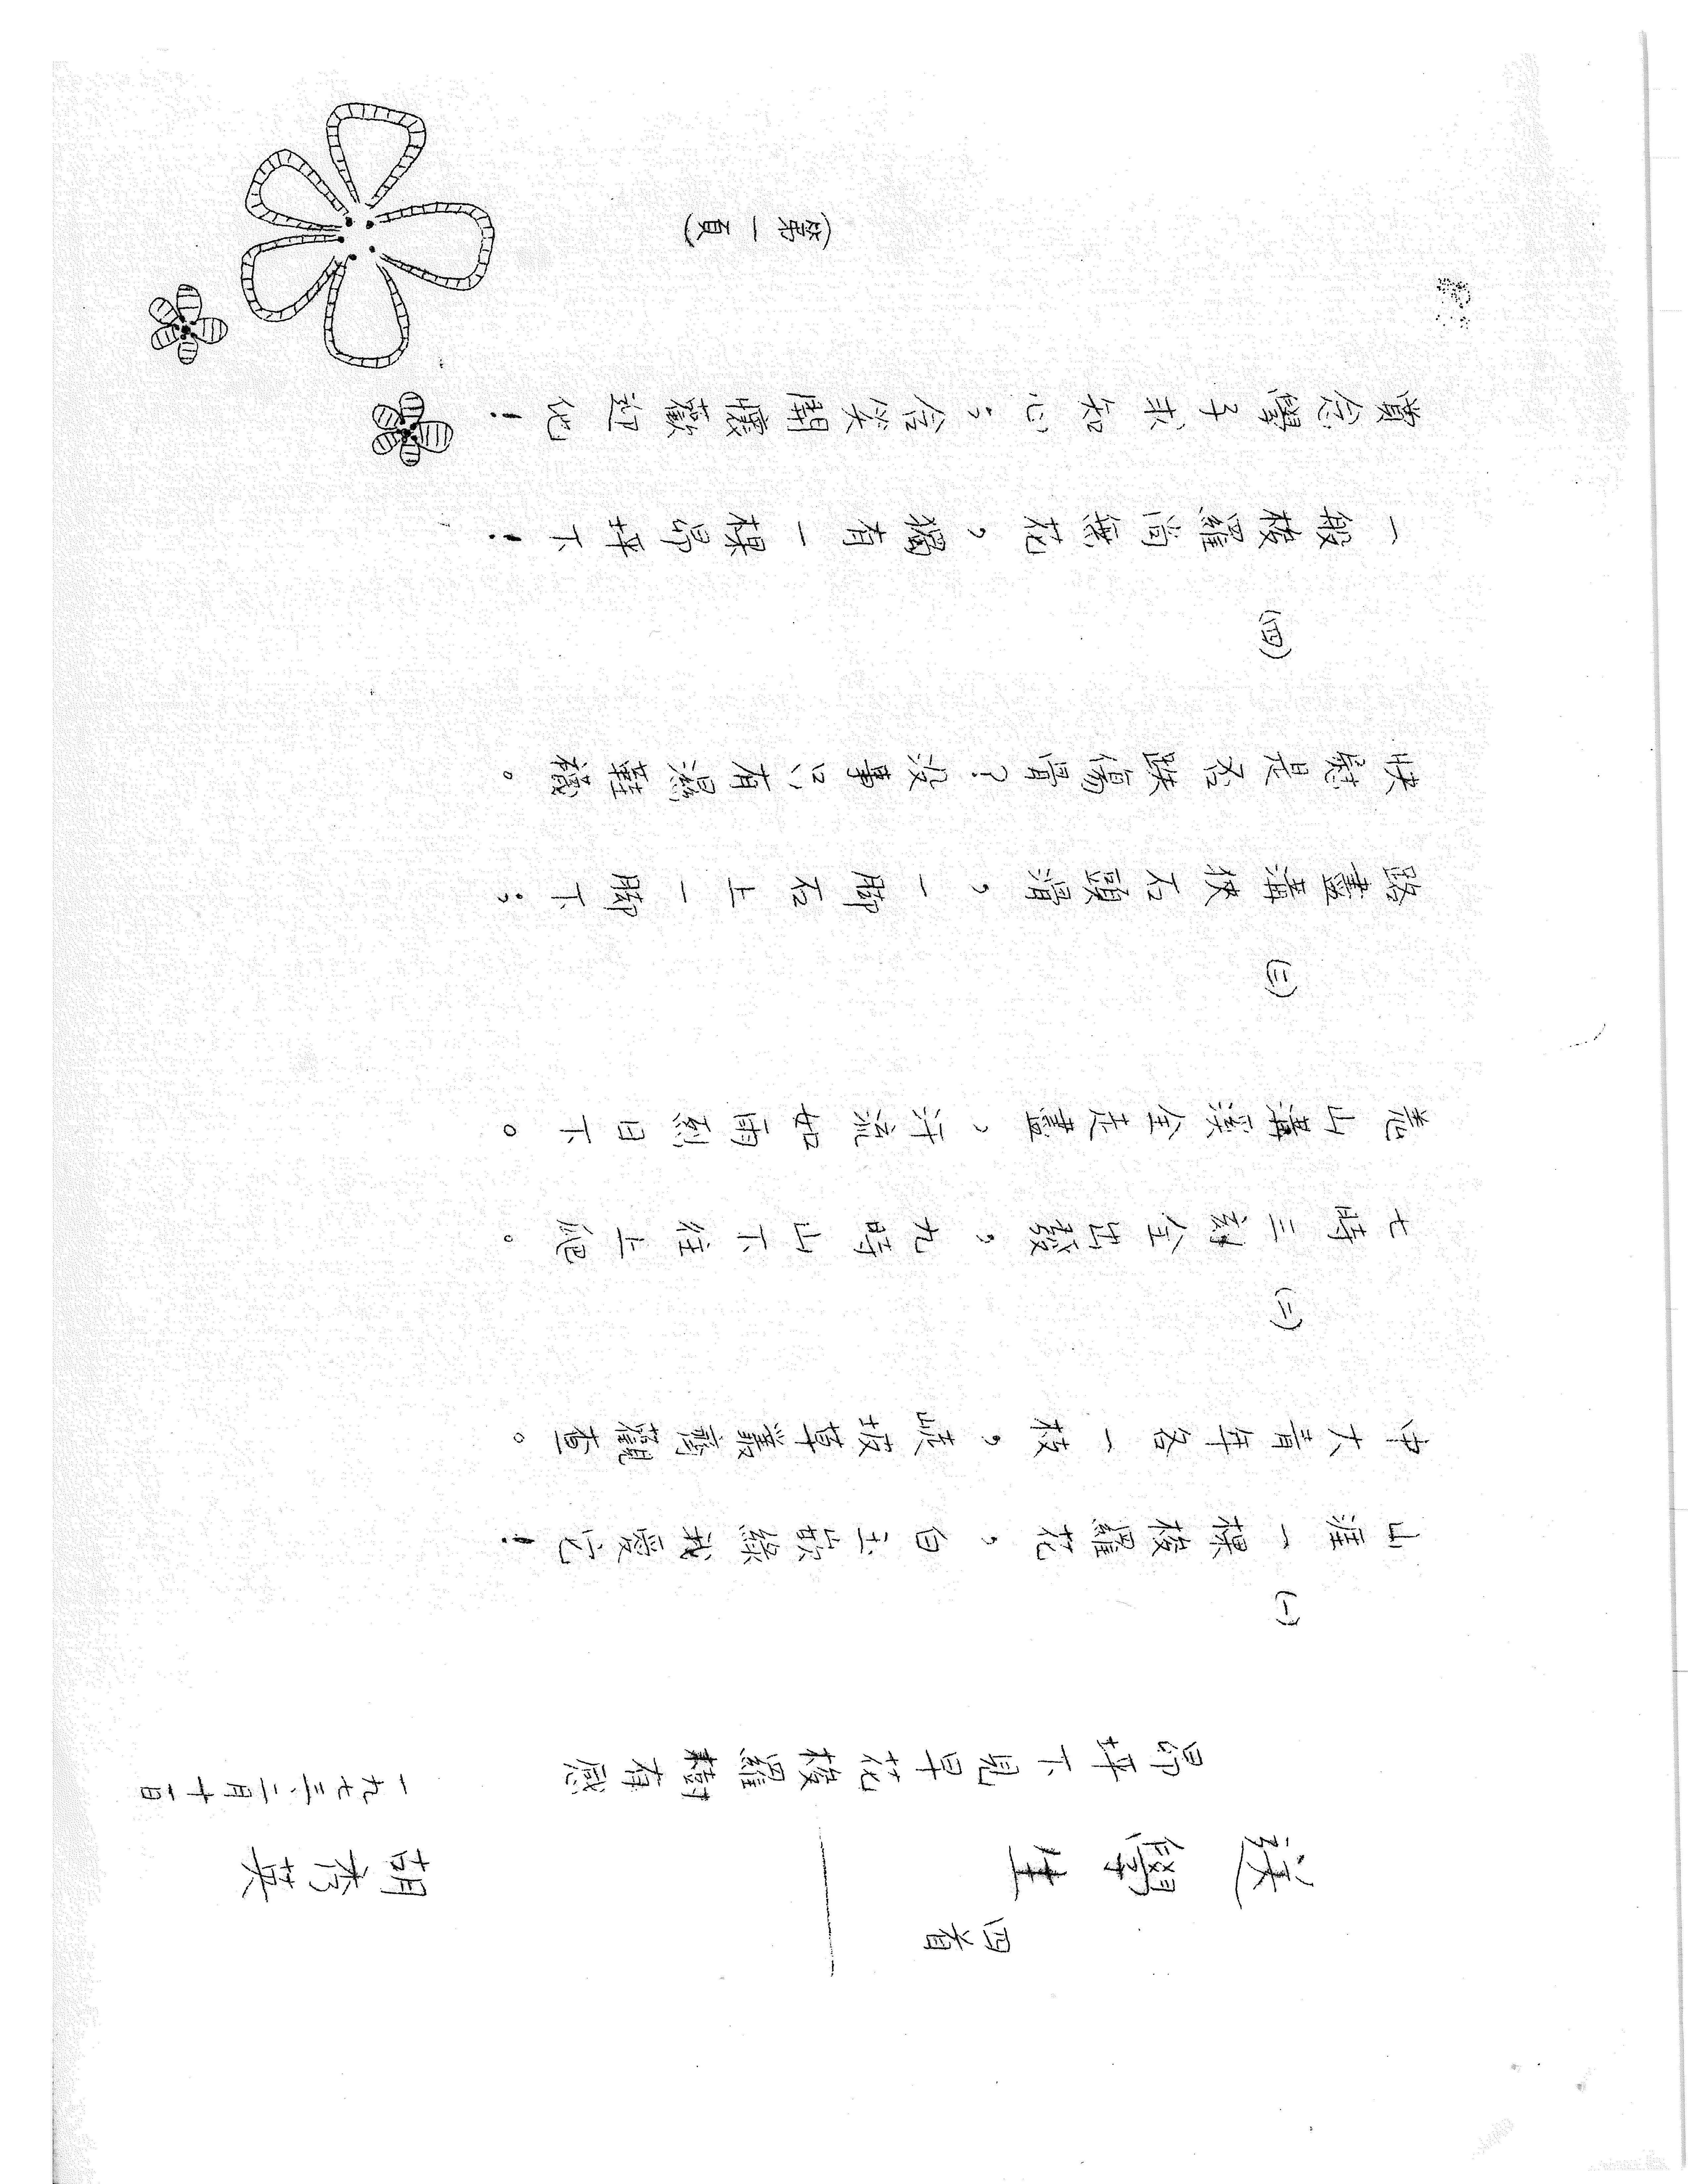 送學生
四首
昂坪下見早花梭羅樹有感
胡秀英
一九七三、二月十一日
(一)
山涯一棵梭羅花,白玉嵌綠我愛它!
中大青年各一枝,峻坡草叢齊觀查。
(二)
七時三刻全出發,九時山下往上爬。
荒山溝溪全走盡,汗流如雨烈日下。
(三)
路盡溝狹石頭滑,一脚石上一脚下;
快慰是否跌傷骨?沒事只有濕鞋襪。
(四)
一般梭羅尚無花,獨有一棵昂坪下!
賞念學子求知心;含笑開懷歡迎他!
(第一頁)